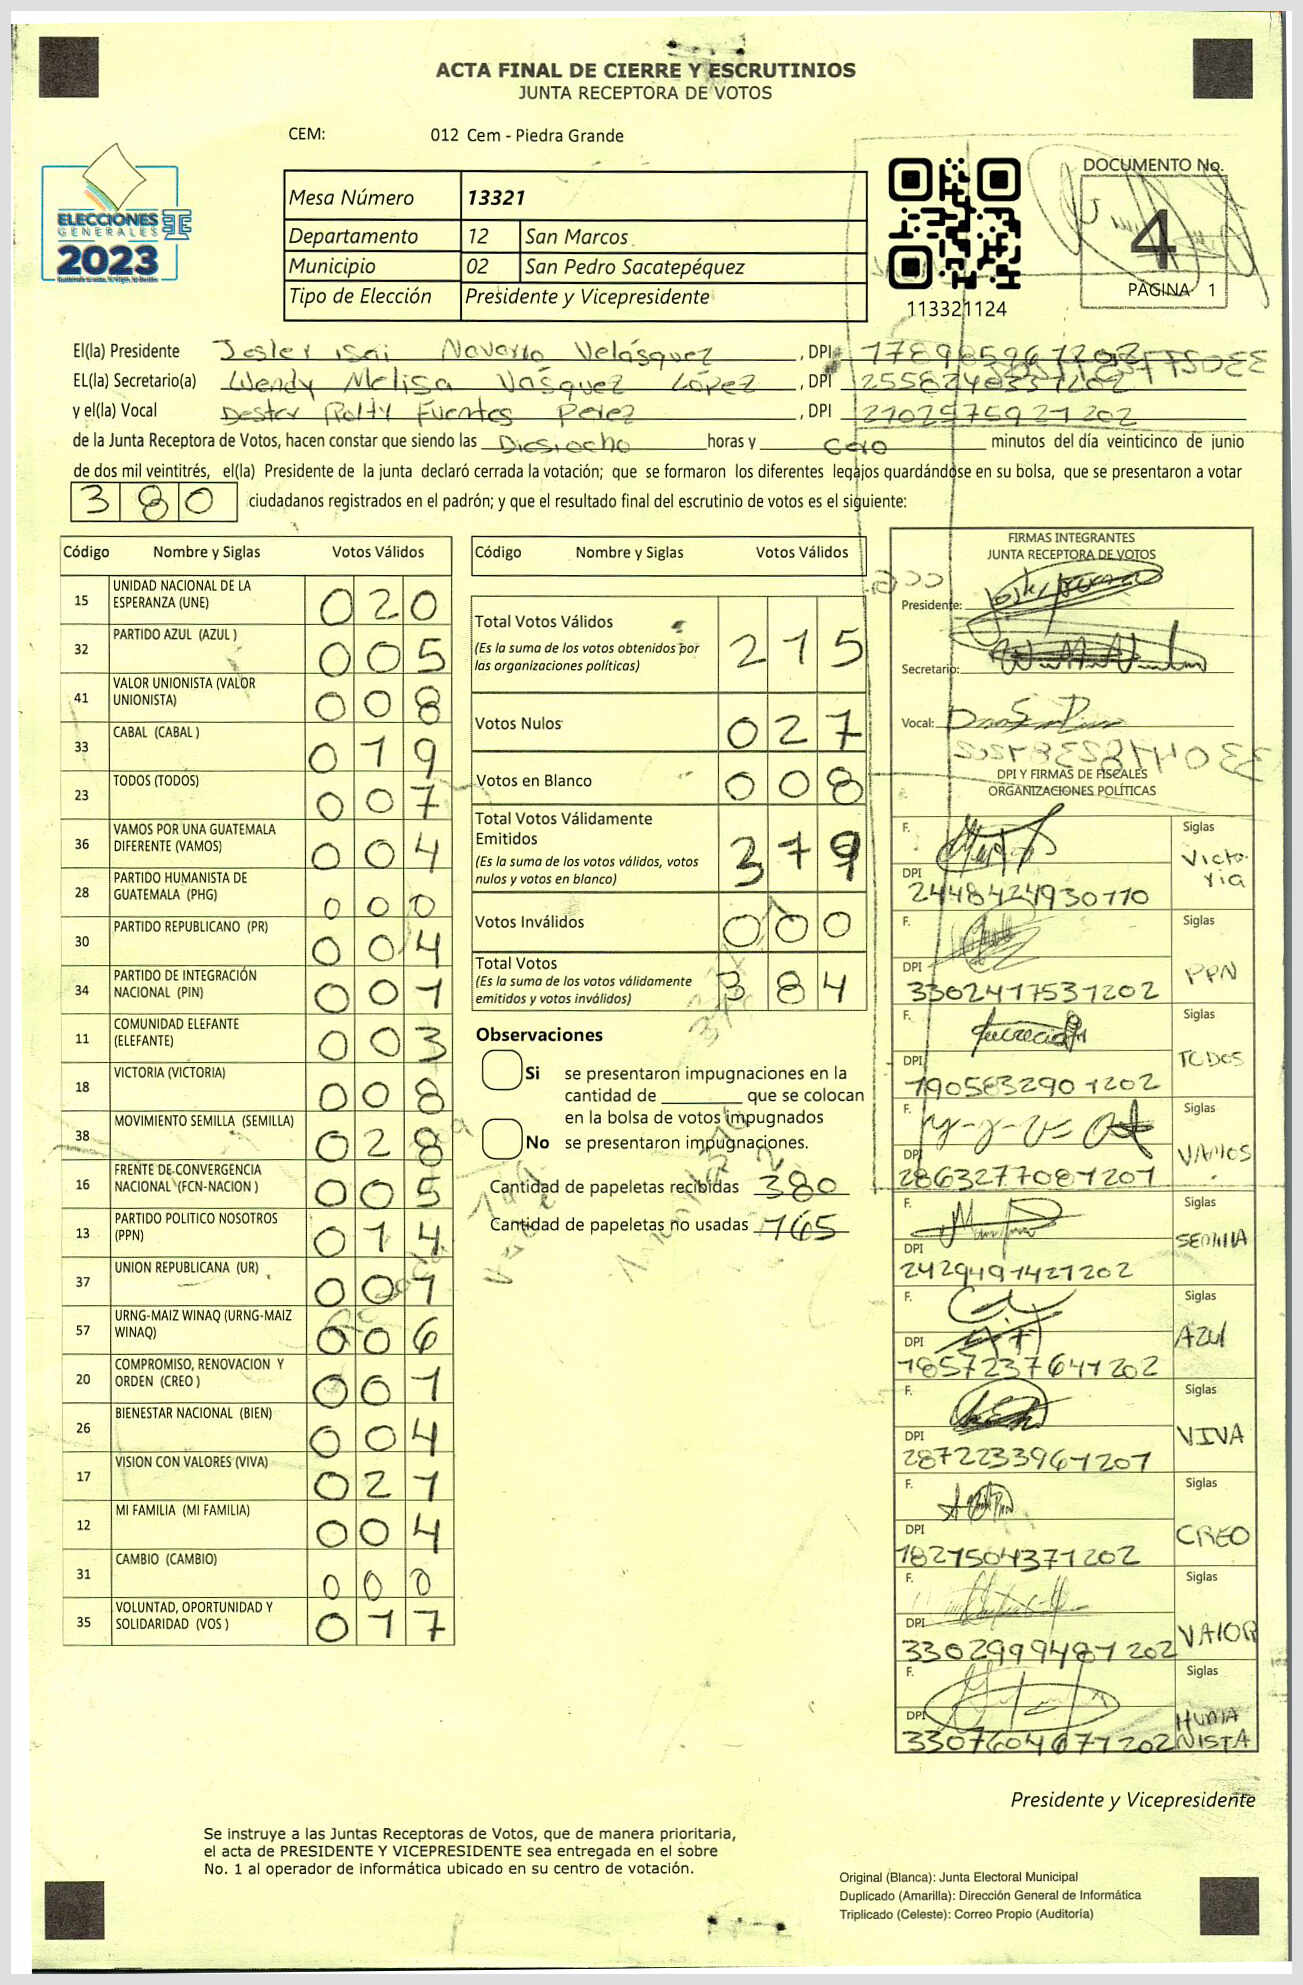 ACTA FINAL DE CIERRE Y ESCRUTINIOS
JUNTA RECEPTORA DE VOTOS
CEM: 012 Cem - Piedra Grande
ELECCIONES
GENERALES
2023
Mesa Número 13321
Departamento 12 San Marcos
Municipio 02 San Pedro Sacatepéquez
Tipo de Elección Presidente y Vicepresidente
113321124
DOCUMENTO No.
4
PÁGINA 1
El(la) Presidente Jesler Isai Navarro Velásquez, DPI
EL(la) Secretario(a) Wendy Melisa Vásquez López, DPI
y el(la) Vocal Dester Rolty Fuentes Perez, DPI 2102575921202
de la Junta Receptora de Votos, hacen constar que siendo las Diesiocho horas y Cero minutos del día veinticinco de junio
de dos mil veintitrés, el(la) Presidente de la junta declaró cerrada la votación; que se formaron los diferentes legajos quardándose en su bolsa, que se presentaron a votar
380 ciudadanos registrados en el padrón; y que el resultado final del escrutinio de votos es el siguiente:
Código Nombre y Siglas Votos Válidos
15 UNIDAD NACIONAL DE LA ESPERANZA (UNE) 020
32 PARTIDO AZUL (AZUL ) 005
41 VALOR UNIONISTA (VALOR UNIONISTA) 008
33 CABAL (CABAL ) 019
23 TODOS (TODOS) 007
36 VAMOS POR UNA GUATEMALA DIFERENTE (VAMOS) 004
28 PARTIDO HUMANISTA DE GUATEMALA (PHG) 000
30 PARTIDO REPUBLICANO (PR) 004
34 PARTIDO DE INTEGRACIÓN NACIONAL (PIN) 001
11 COMUNIDAD ELEFANTE (ELEFANTE) 003
18 VICTORIA (VICTORIA) 008
38 MOVIMIENTO SEMILLA (SEMILLA) 028
16 FRENTE DE CONVERGENCIA NACIONAL (FCN-NACION ) 005
13 PARTIDO POLITICO NOSOTROS (PPN) 014
37 UNION REPUBLICANA (UR) 001
57 URNG-MAIZ WINAQ (URNG-MAIZ WINAQ) 006
20 COMPROMISO, RENOVACION Y ORDEN (CREO ) 001
26 BIENESTAR NACIONAL (BIEN) 004
17 VISION CON VALORES (VIVA) 021
12 MI FAMILIA (MI FAMILIA) 004
31 CAMBIO (CAMBIO) 000
35 VOLUNTAD, OPORTUNIDAD Y SOLIDARIDAD (VOS ) 017
Código Nombre y Siglas Votos Válidos
Total Votos Válidos 215
(Es la suma de los votos obtenidos por
las organizaciones políticas)
Votos Nulos 027
Votos en Blanco 008
Total Votos Válidamente
Emitidos 379
(Es la suma de los votos válidos, votos
nulos y votos en blanco)
Votos Inválidos 000
Total Votos 384
(Es la suma de los votos válidamente
emitidos y votos inválidos)
Observaciones
Si se presentaron impugnaciones en la
cantidad de ________ que se colocan
en la bolsa de votos impugnados
No se presentaron impugnaciones.
Cantidad de papeletas recibidas 380
Cantidad de papeletas no usadas 165
FIRMAS INTEGRANTES
JUNTA RECEPTORA DE VOTOS
Presidente:
Secretario:
Vocal:
DPI Y FIRMAS DE FISCALES
ORGANIZACIONES POLÍTICAS
F. Siglas
DPI Victoria
2448424930110
F. Siglas
DPI PPN
3302417531202
F. Siglas
DPI TODOS
1905832901202
F. Siglas
DPI VAMOS
2863277081201
F. Siglas
DPI SEMILLA
2429491421202
F. Siglas
DPI AZUL
1857237641202
F. Siglas
DPI VIVA
2872233961201
F. Siglas
DPI CREO
1821504371202
F. Siglas
DPI VALOR
3302999481202
F. Siglas
DPI HUMANISTA
3307604671202
Presidente y Vicepresidente
Se instruye a las Juntas Receptoras de Votos, que de manera prioritaria,
el acta de PRESIDENTE Y VICEPRESIDENTE sea entregada en el sobre
No. 1 al operador de informática ubicado en su centro de votación.
Original (Blanca): Junta Electoral Municipal
Duplicado (Amarilla): Dirección General de Informática
Triplicado (Celeste): Correo Propio (Auditoría)